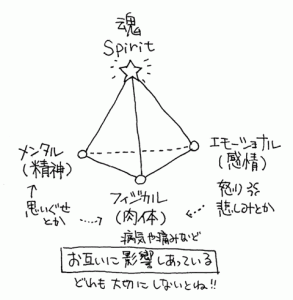 魂
Spirit
メンタル
(精神)
エモーショナル
(感情)
↑
思いぐせ
とか
フィジカル
(肉体)
怒り
悲しみとか
病気や痛みなど
お互いに影響しあっている
どれも大切にしないとね!!